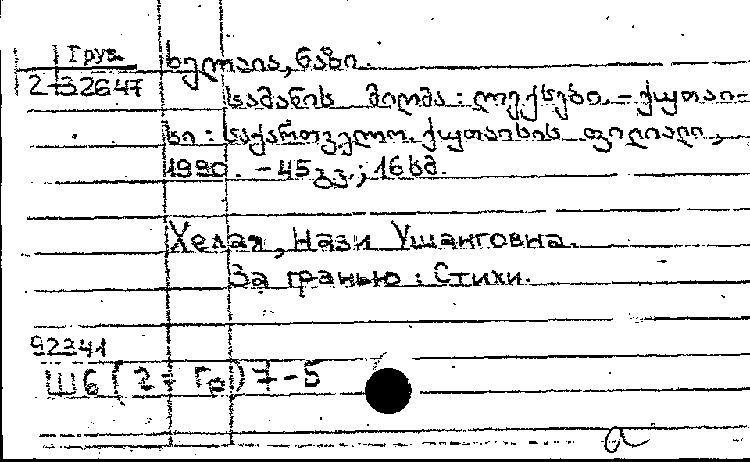 Груз.
ხელაია, ნაზი.
2-32647
საზღვრის მიღმა : ლექსები. – ქუთაი-
სი : საქართველო. ქუთაისის ფილიალი,
1990. – 45 გვ. ; 16 სმ.
Хелая, Нази Ушанговна.
За гранью : Стихи.
92341
Ш6 (2 = Гр) 7-5
a